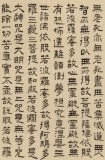 智亦無得以無所得故菩提薩埵依般
若波羅蜜多故心無罣礙無罣礙故無
有恐怖遠離顛倒夢想究竟涅槃三
世諸佛依般若波羅蜜多故得阿耨多
羅三藐三菩提故知般若波羅蜜多是
大神咒是大明咒是無上咒是無等等咒
能除一切苦真實不虛故說般若波羅